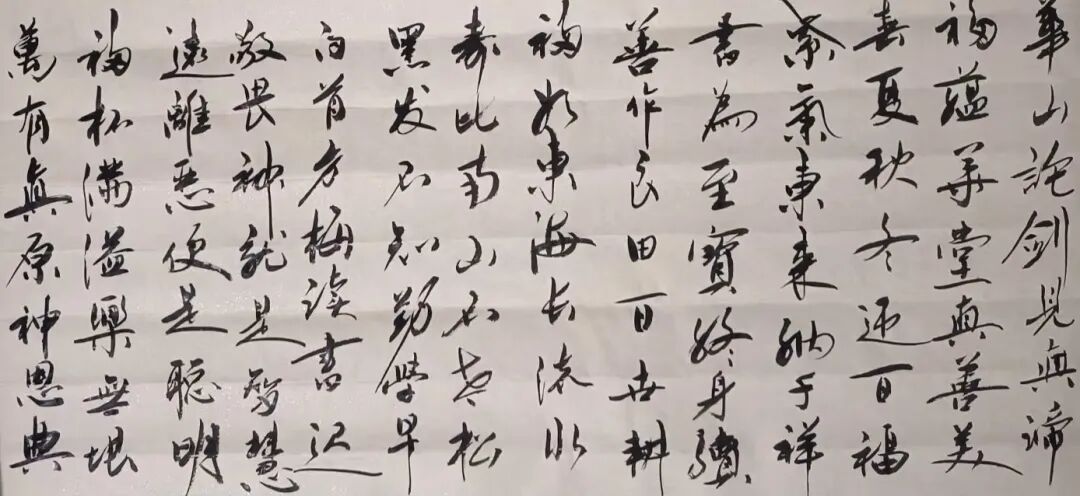 華山論剑見真諦
福蕴華堂真善美
春夏秋冬迎百福
紫氣東来納千祥
書為至寶终身驥
善作良田百世耕
福如東海长流水
寿比南山不老松
黑发不知勤學早
白首方悔读书迟
敬畏神就是智慧
遠離惡便是聪明
福杯满溢樂無垠
萬有真原神恩典